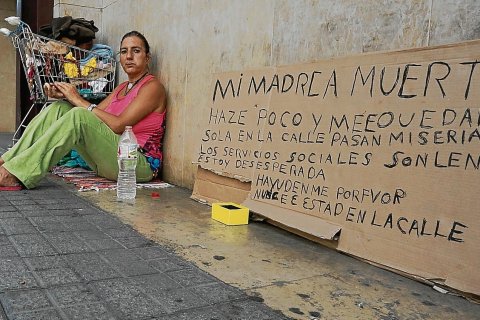 MI MADREA MUERT
HAZE POCO Y MEEQUEDAD
SOLA EN LA CALLE PASAN MISERIA
LOS SERVICIOS SOCIALES SON LEN
ESTOY DESESPERADA
HAYUDENME PORFVOR
NUNCE E ESTAD EN LA CALLE